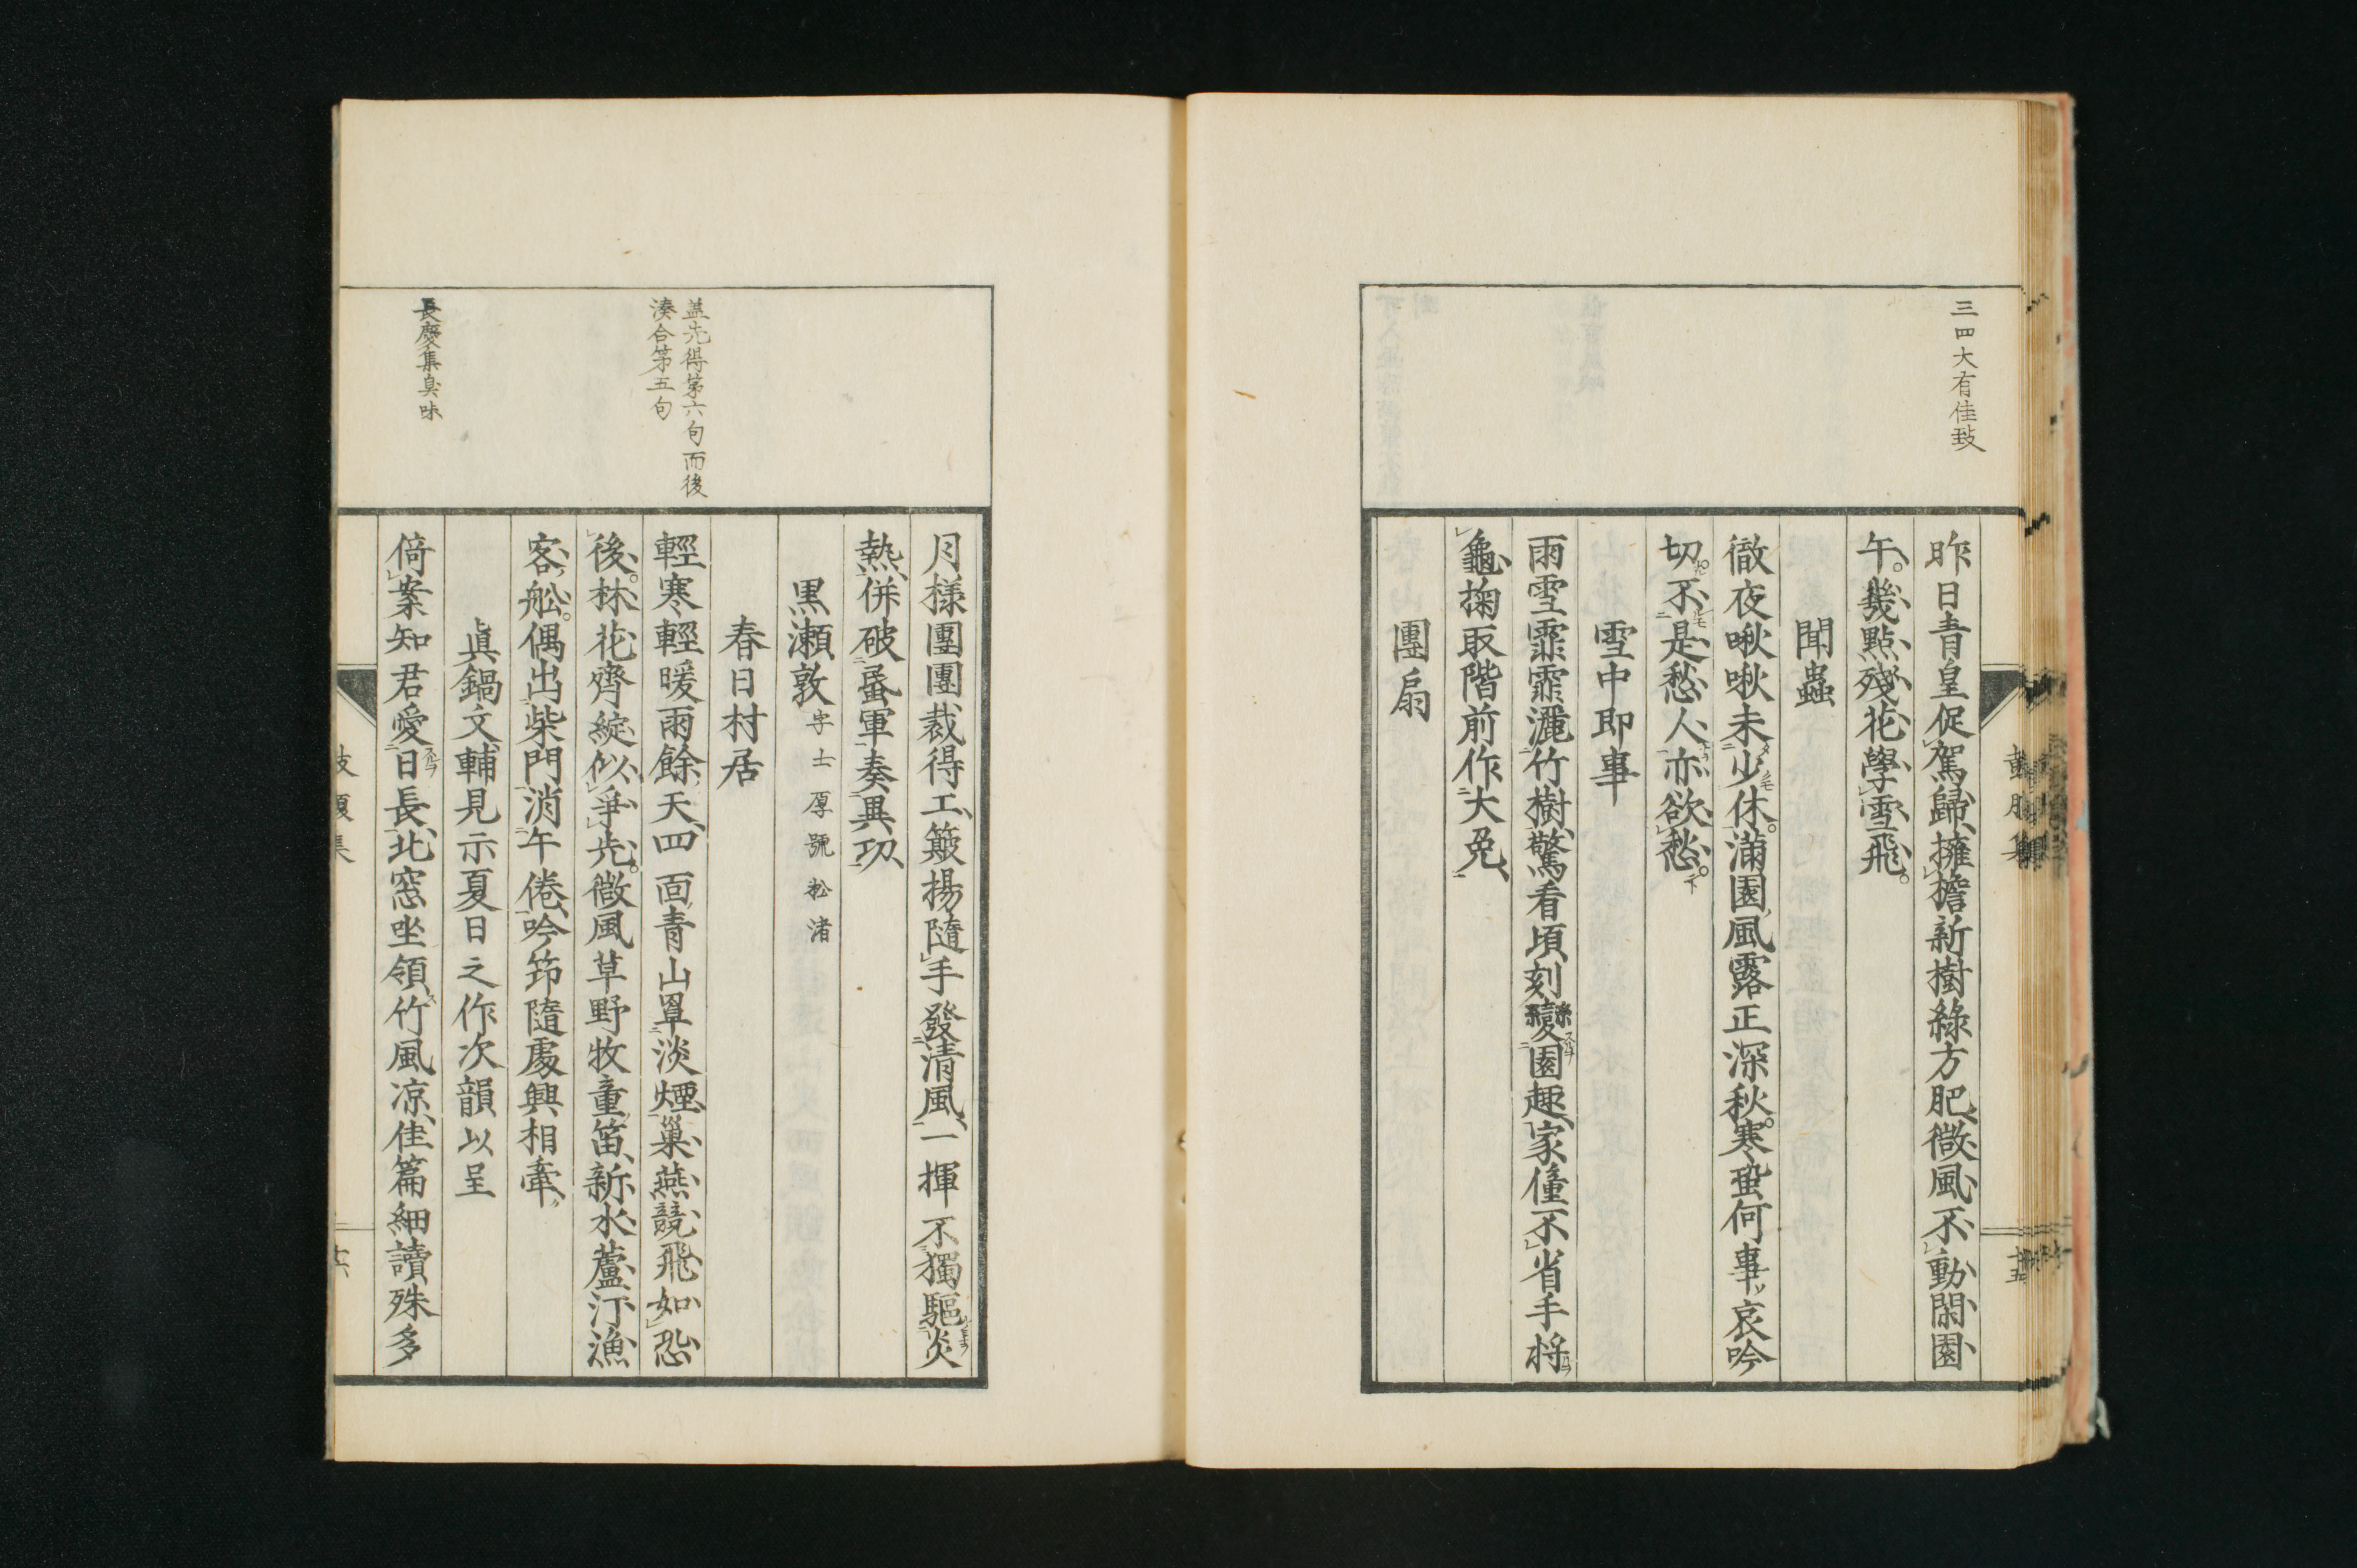 三四大有佳致
昨日青皇促駕歸擁檐新樹綠方肥微風不動閑園
午幾點殘花學雪飛
聞蟲
徹夜啾啾未少休滿園風露正深秋寒蛩何事哀吟
切不是愁人亦欲愁
雪中即事
雨雪霏霏灑竹樹驚看頃刻變園趣家僮不省手將
龜掬取階前作大兔
團扇
月樣團團裁得工簸揚隨手發清風一揮不獨驅炎
熱併破蚊軍奏異功
黒瀨敦字士厚號松渚
春日村居
蓋先得第六句而後
湊合第五句
輕寒輕暖雨餘天四面青山罩淡煙巢燕競飛如恐
後林花齊綻似爭先微風草野牧童笛新水蘆汀漁
客舩偶出柴門消午倦吟筇隨處興相牽
眞鍋文輔見示夏日之作次韻以呈
長慶集臭味
倚案知君愛日長北窓坐領竹風凉佳篇細讀殊多